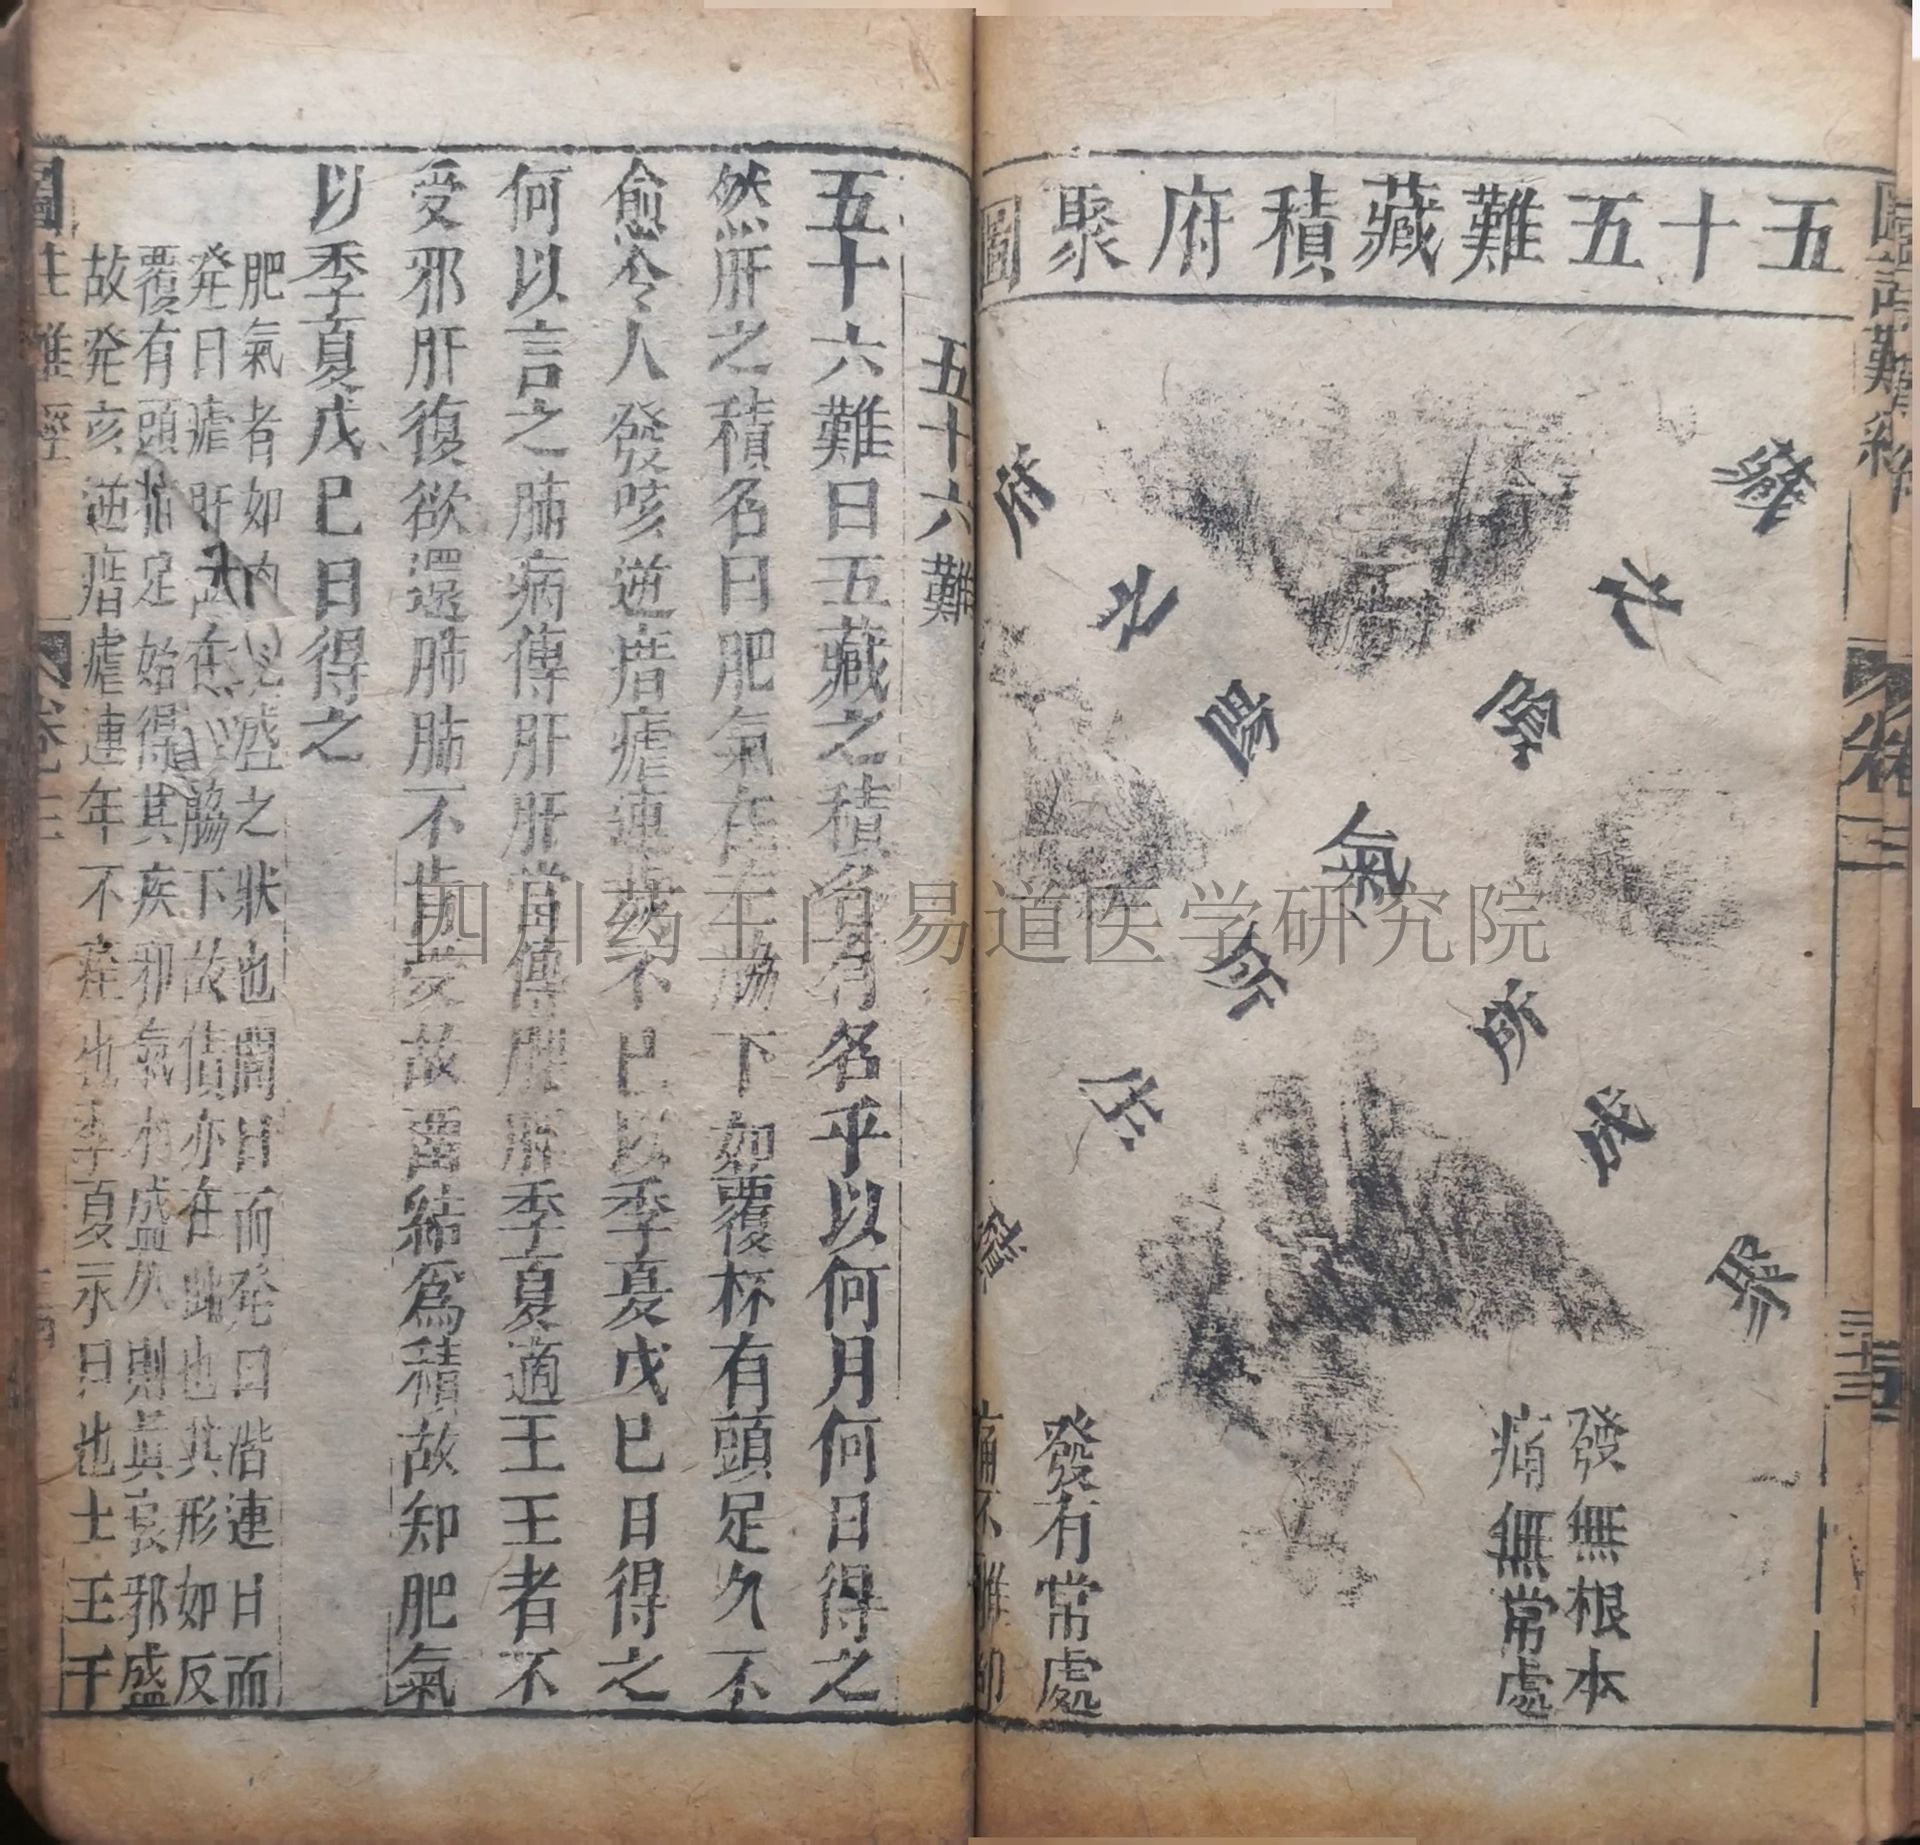 五十五難藏積府聚圖
藏
陰
氣
所
府
陽
氣
所
聚
發無根本
痛無常處
發有常處
五十六難
五十六難曰五藏之積各有名乎以何月何日得之
然肝之積名曰肥氣在左脇下如覆杯有頭足久不
愈令人發咳逆㾬瘧連歲不已以季夏戊巳日得之
何以言之肺病傳肝肝當傳脾脾季夏適王王者不
受邪肝復欲還肺肺不肯受故畱結爲積故知肥氣
以季夏戊巳日得之
肥氣者如肉 盛之狀也間日而発曰㾬連日而
発曰瘧肝 在 脇下故積亦在此也其形如反
覆有頭 足始得其疾邪氣 盛久則真哀邪盛
故発亥逆㾬瘧連年不 也季夏 日也土王于
卷三
四川药王门易道医学研究院